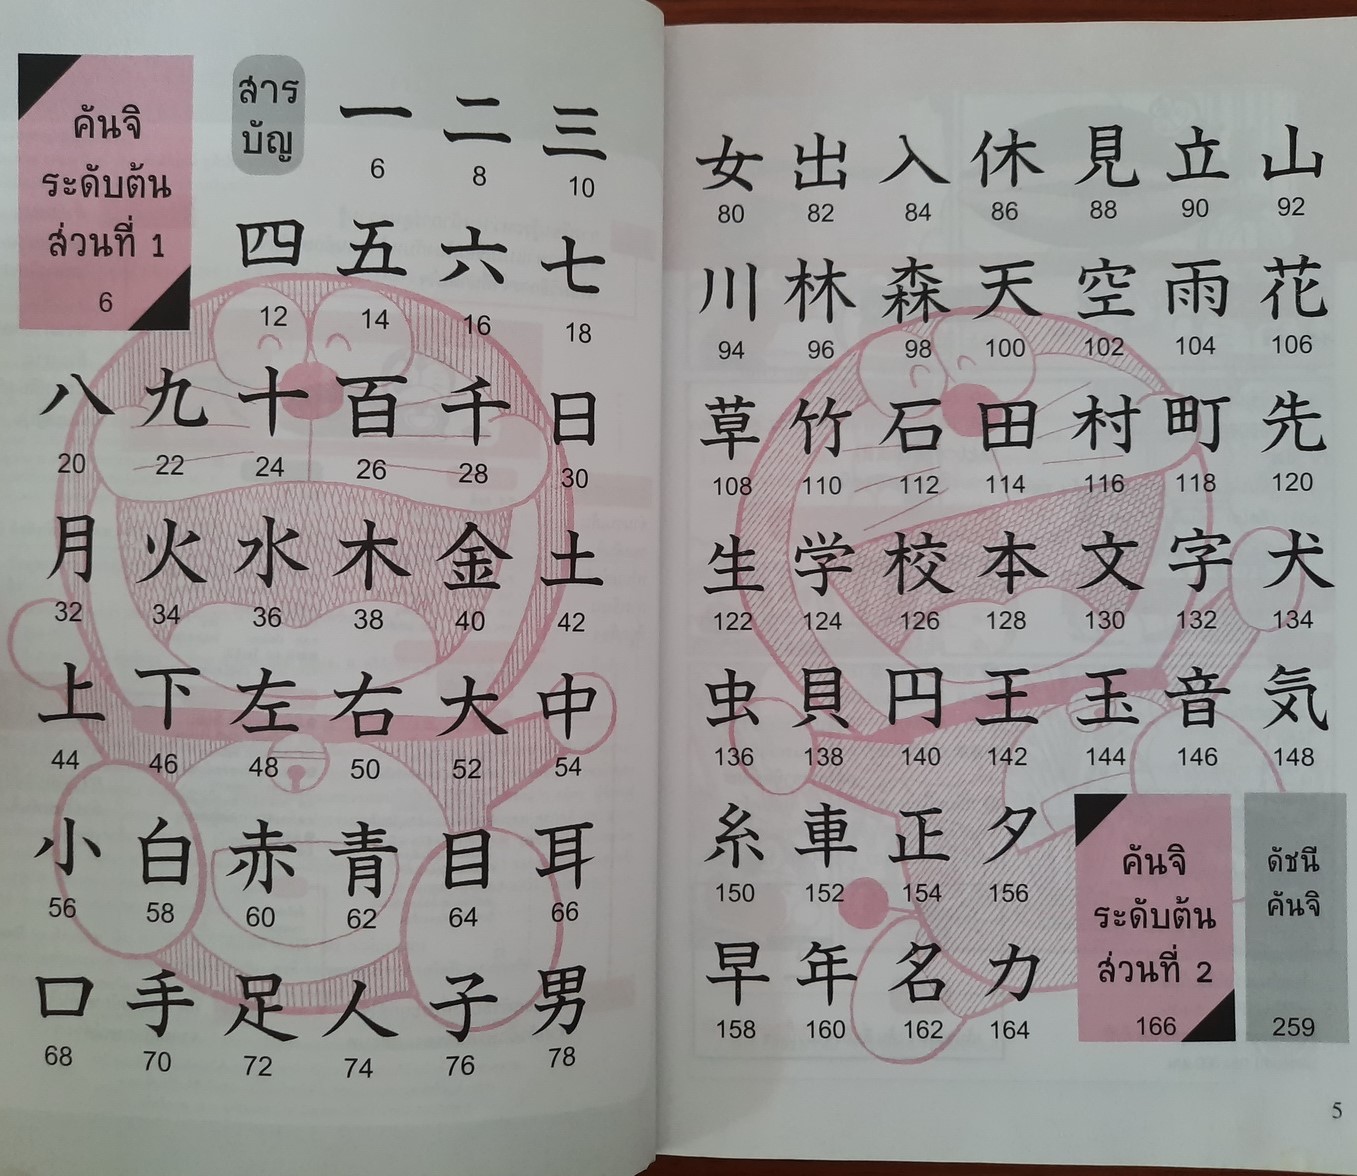 คันจิ
ระดับต้น
ส่วนที่ 1
6
สาร
บัญ
一 二 三
6 8 10
四 五 六 七
12 14 16 18
八 九 十 百 千 日
20 22 24 26 28 30
月 火 水 木 金 土
32 34 36 38 40 42
上 下 左 右 大 中
44 46 48 50 52 54
小 白 赤 青 目 耳
56 58 60 62 64 66
口 手 足 人 子 男
68 70 72 74 76 78
女 出 入 休 見 立 山
80 82 84 86 88 90 92
川 林 森 天 空 雨 花
94 96 98 100 102 104 106
草 竹 石 田 村 町 先
108 110 112 114 116 118 120
生 学 校 本 文 字 犬
122 124 126 128 130 132 134
虫 貝 円 王 玉 音 気
136 138 140 142 144 146 148
糸 車 正 夕
150 152 154 156
早 年 名 力
158 160 162 164
คันจิ
ระดับต้น
ส่วนที่ 2
166
ดัชนี
คันจิ
259
5